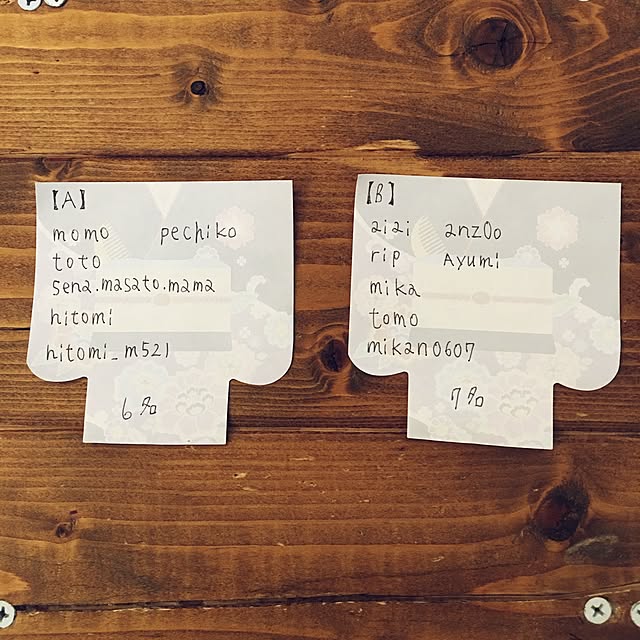 【A】
momo pechiko
toto
sena.masato.mama
hitomi
hitomi_m521
6名
【B】
aiai anzOo
rip Ayumi
mika
tomo
mikan0607
7名